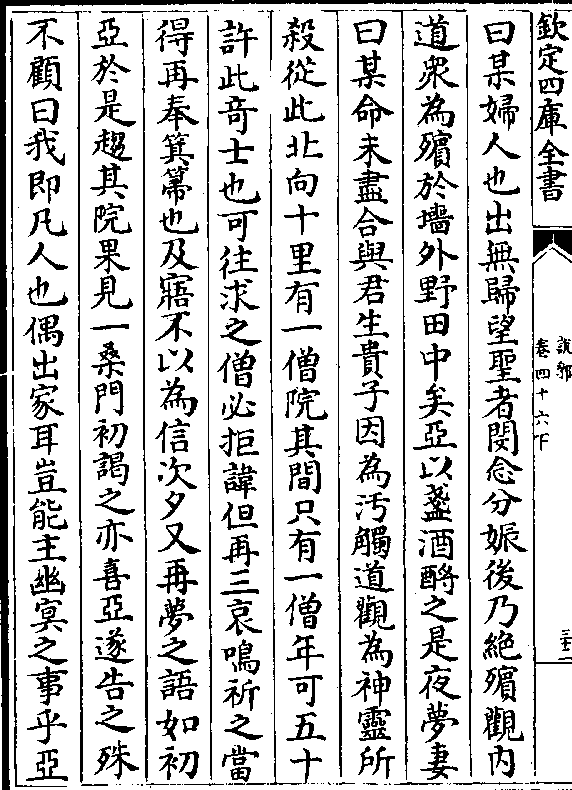 欽定四庫全書
說郛
卷四十六下
三十二
曰某婦人也出無歸望聖者閔念分娠後乃絶殯觀内
道衆為殯於墻外野田中矣亞以盞酒酹之是夜夢妻
曰某命未盡合與君生貴子因為汚觸道觀為神靈所
殺從此北向十里有一僧院其間只有一僧年可五十
許此竒士也可往求之僧必拒諱但再三哀鳴祈之當
得再奉箕箒也及寤不以為信次夕又再夢之語如初
亞於是趨其院果見一桑門初謁之亦喜亞遂告之殊
不顧曰我即凡人也偶出家耳豈能主幽冥之事乎亞